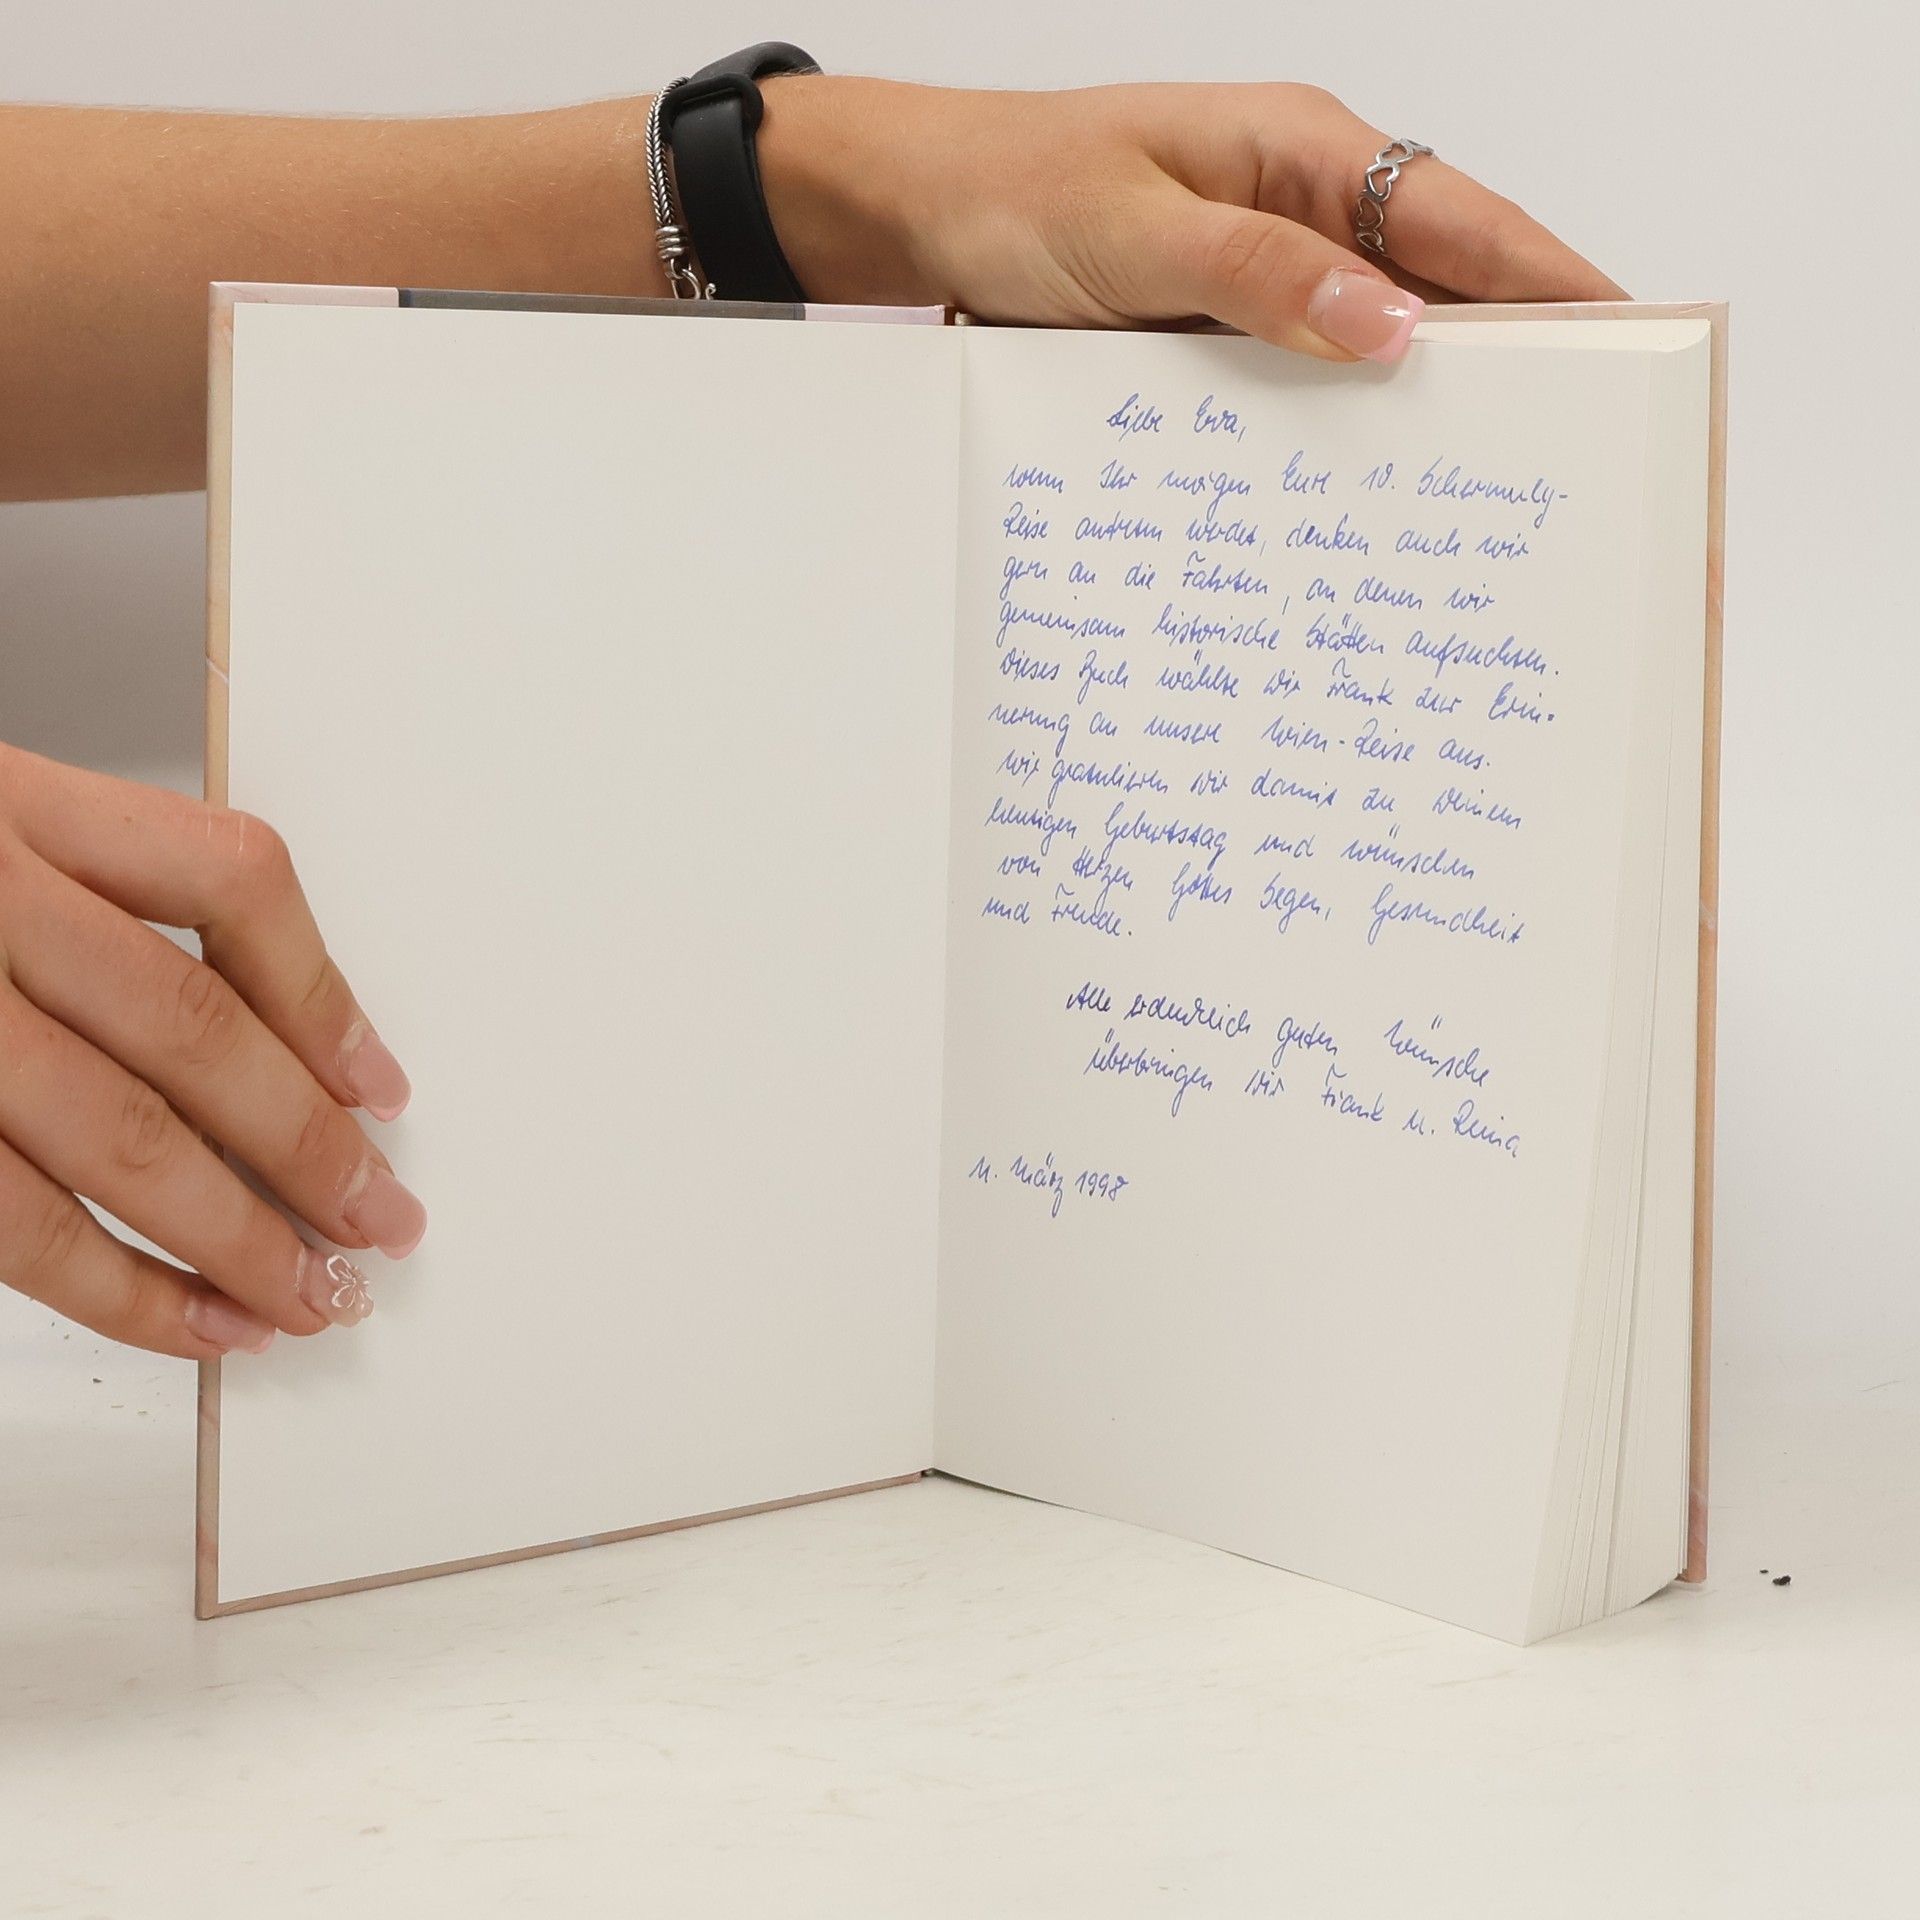 Liebe Eva,
wenn Ihr morgen Eure 10. Schermuly-
Reise antreten werdet, denken auch wir
gern an die Fahrten, an denen wir
gemeinsam historische Stätten aufsuchten.
Dieses Buch wählte Dir Frank zur Erin-
nerung an unsere Wien-Reise aus.
Wir gratulieren Dir damit zu Deinem
heutigen Geburtstag und wünschen
von Herzen Gottes Segen, Gesundheit
und Freude.
Alle erdenkeich guten Wünsche
überbringen Dir Frank u. Reina
11. März 1998